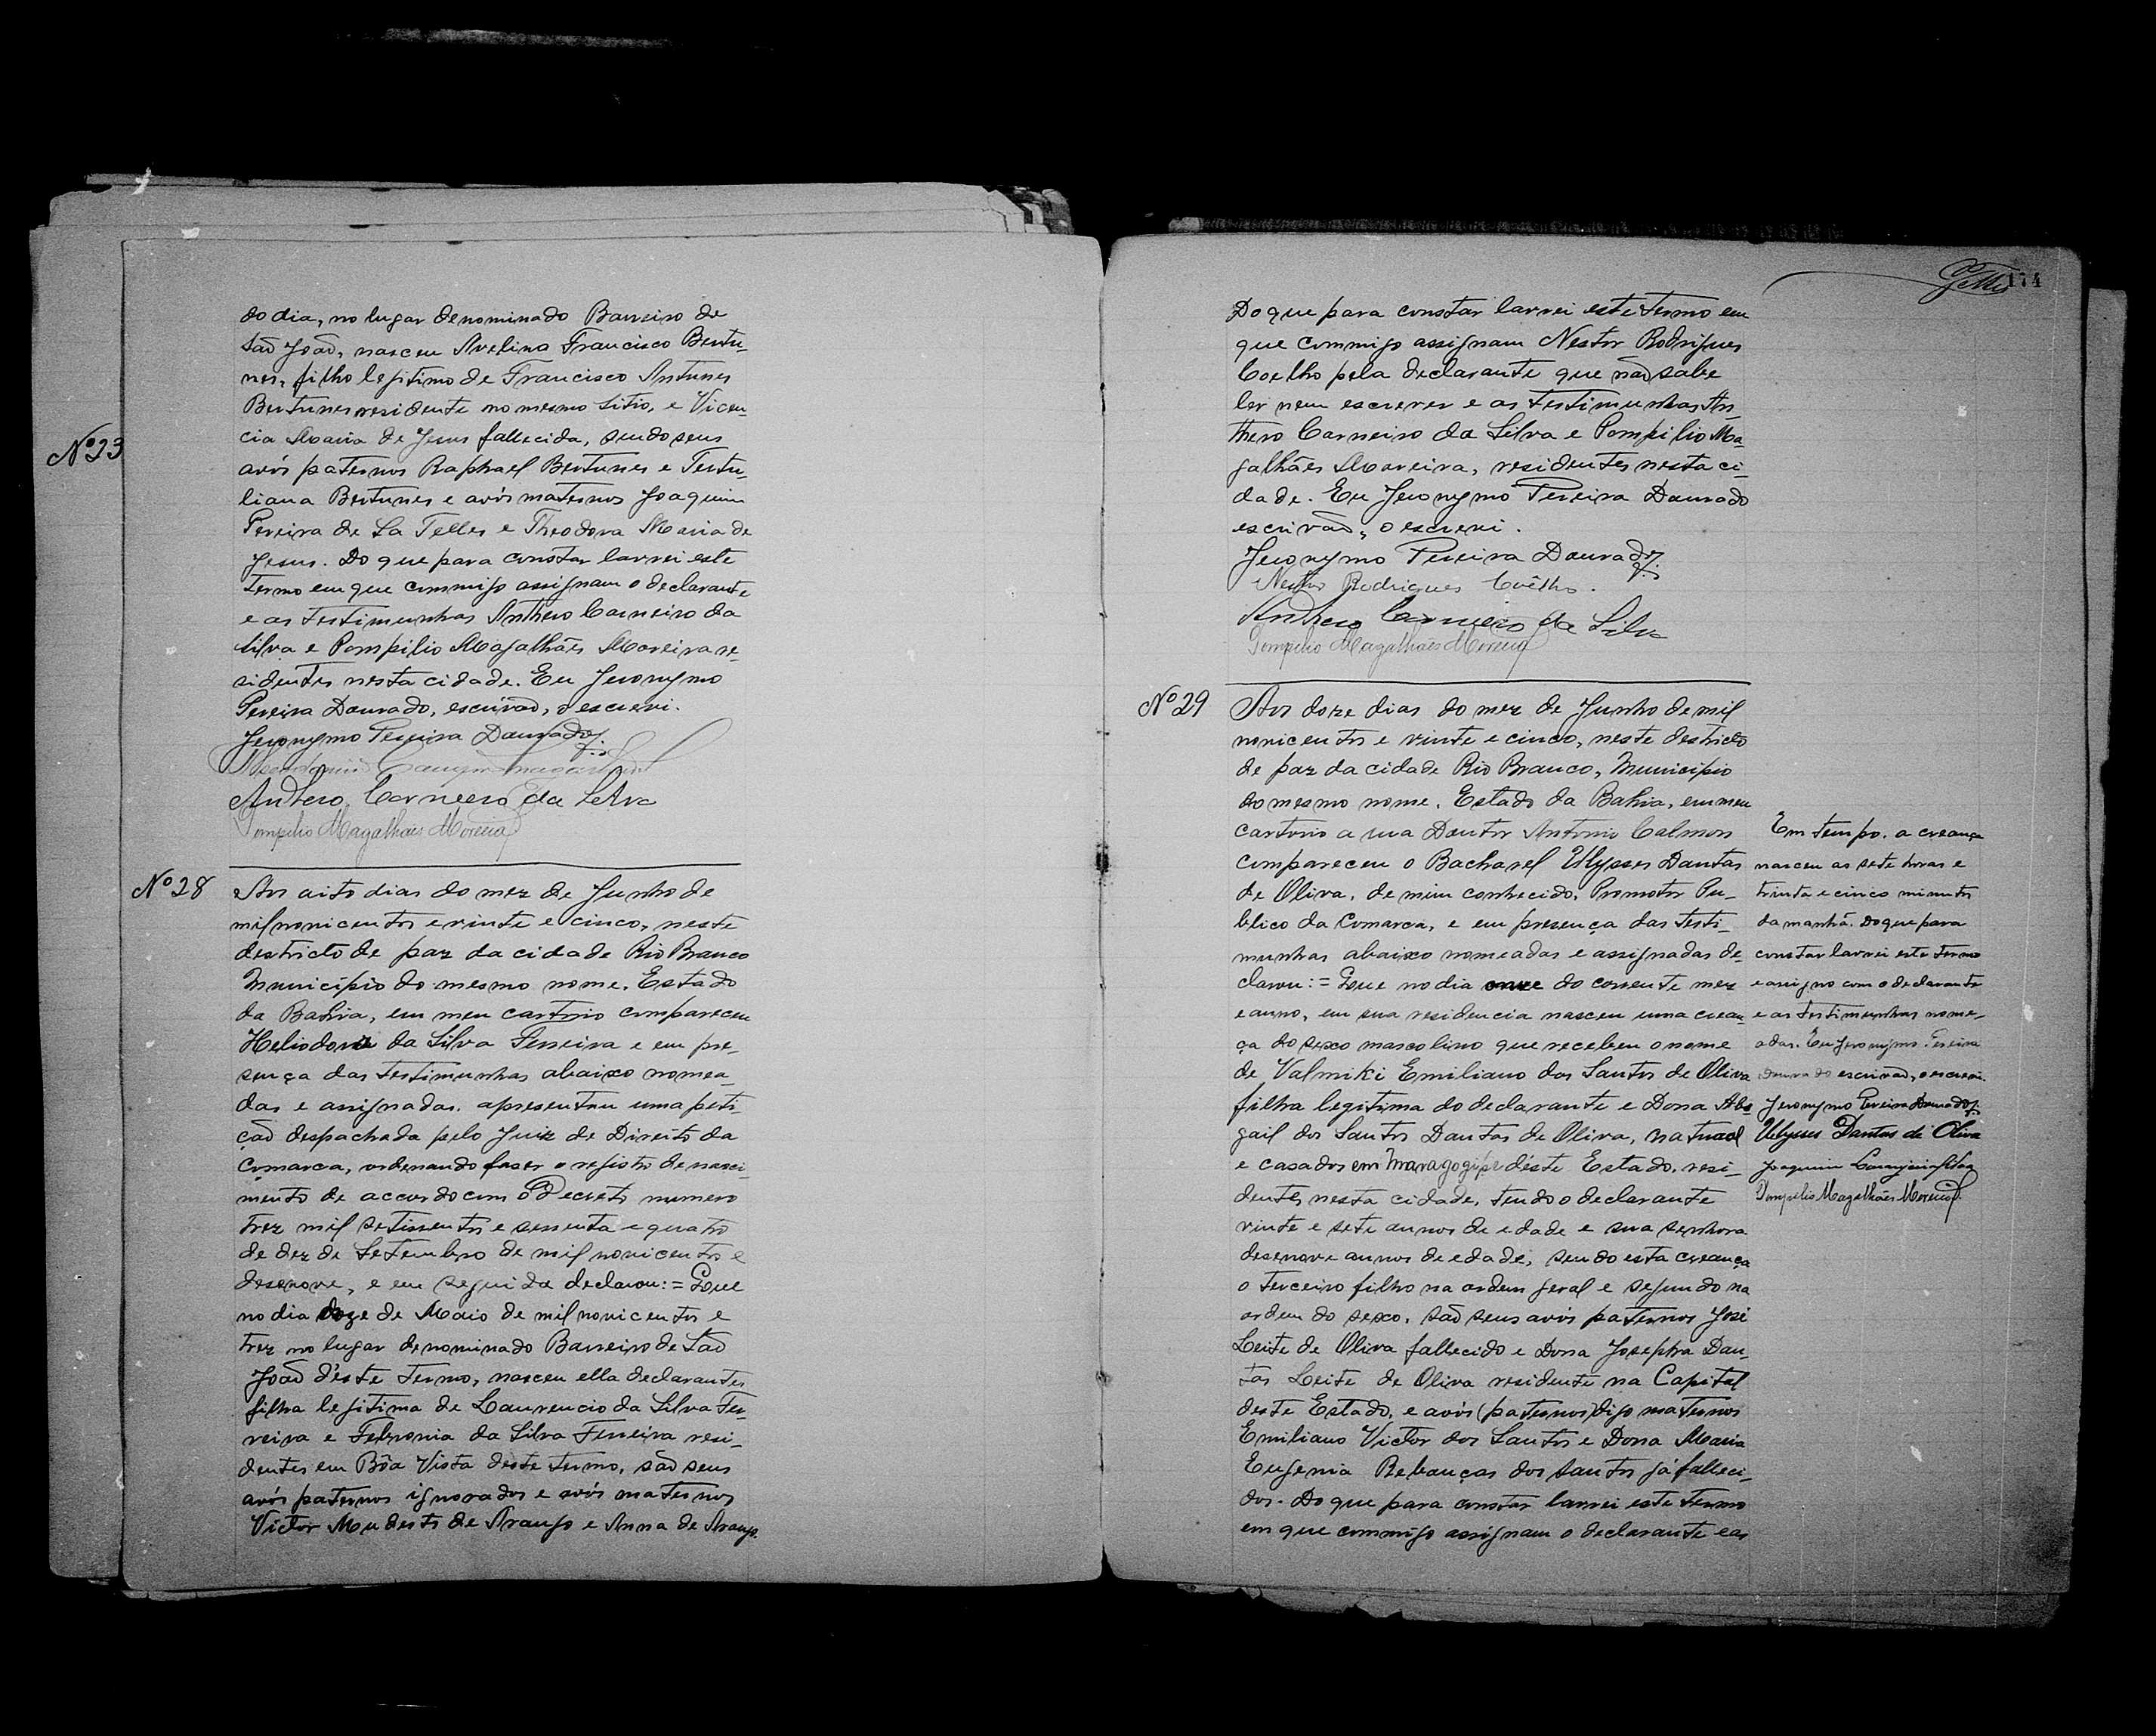 do dia, no lugar denominado Barreiro de
São João, nasceu Avelino Francisco Bertu-
nes, filho legitimo de Francisco Antunes
Bertunes residente no mesmo sitio, e Vicen-
cia Maria de Jesus fallecida, sendo seus
Nº 23
avós paternos Raphael Bertunes e Tertu-
liana Bertunes e avós maternos Joaquim
Pereira de Sa Telles e Theodora Maria de
Jesus. Do que para constar lavrei este
termo em que commigo assignam o declarante
e as testimunhas Anthero Carneiro da
Silva e Pompilio Magalhães Moreira re-
sidentes nesta cidade. Eu Jeronymo
Pereira Dourado, escrivão, o escrevi.
Jeronymo Pereira Dourado
Anthero Carneiro da Silva
Pompilio Magalhães Moreira
Nº 28
Aos oito dias do mez de Junho de
mil novicentos e vinte e cinco, neste
destricto de paz da cidade Rio Branco
Municipio do mesmo nome, Estado
da Bahia, em meu cartorio compareceu
Heliodora da Silva Ferreira e em pre-
sença das testimunhas abaixo nomea-
das e assignadas, apresentou uma peti-
ção despachada pelo Juiz de Direito da
Comarca, ordenando faser o registro de nasci-
mento de accordo com o Decreto numero
trez mil setissentos e sessenta e quatro
de dez de Setembro de mil novicentos e
desenove, e em seguida declarou: = Que
no dia doze de Maio de mil novicentos e
trez no lugar denominado Barreiro de São
João d'este termo, nasceu ella declarante,
filha legitima de Laurencio da Silva Fer-
reira e Febronia da Silva Ferreira resi-
dentes em Bôa Vista deste termo, são seus
avós paternos ignorados e avós maternos
Victor Mudesto de Araujo e Anna de Araujo.
174
Do que para constar lavrei este termo em
que commigo assignam Nestor Rodrigues
Coelho pela declarante que não sabe
ler nem escrever e as testimunhas An-
thero Carneiro da Silva e Pompilio Ma-
galhães Moreira, residentes nesta ci-
dade. Eu Jeronymo Pereira Dourado
escrivão, o escrevi.
Jeronymo Pereira Dourado
Nestor Rodrigues Coêlho.
Anthero Carneiro da Silva
Pompilio Magalhães Moreira
Nº 29
Aos doze dias do mez de Junho de mil
novicentos e vinte e cinco, neste destricto
de paz da cidade Rio Branco, Municipio
do mesmo nome, Estado da Bahia, em meu
cartorio a rua Doutor Antonio Calmon
compareceu o Bacharel Ulysses Dantas
de Oliva, de mim conhecido, Promotor Pu-
blico da Comarca, e em presença das testi-
munhas abaixo nomeadas e assignadas de-
clarou: = Que no dia onze do corrente mez
e anno, em sua residencia nasceu uma crean-
ça do sexo mascolino que recebeu o nome
de Valmiki Emiliano dos Santos de Oliva
filho legitimo do declarante e Dona Abi-
gail dos Santos Dantas de Oliva, natural
e casados em Maragogipe déste Estado, resi-
dentes nesta cidade, tendo o declarante
vinte e sete annos de edade e sua senhora
desenove annos de edade, sendo esta creança
o terceiro filho na ordem geral e segundo na
ordem do sexo, são seus avós paternos José
Leite de Oliva fallecido e Dona Josepha Dan-
tas Leite de Oliva residente na Capital
deste Estado, e avós (paternos) digo maternos
Emiliano Victor dos Santos e Dona Maria
Eugenia Rebouças dos Santos já falleci-
dos. Do que para constar lavrei este termo
em que commigo assignam o declarante e as
Em tempo. a creança
nasceu as sete horas e
trinta e cinco minutos
da manhã. Do que para
constar lavrei este termo
e assigno com o declarante
e as testimunhas nome-
adas. Eu Jeronymo Pereira
Dourado escrivão, o escrevi.
Jeronymo Pereira Dourado
Ulysses Dantas de Oliva
Joaquim
Pompilio Magalhães Moreira